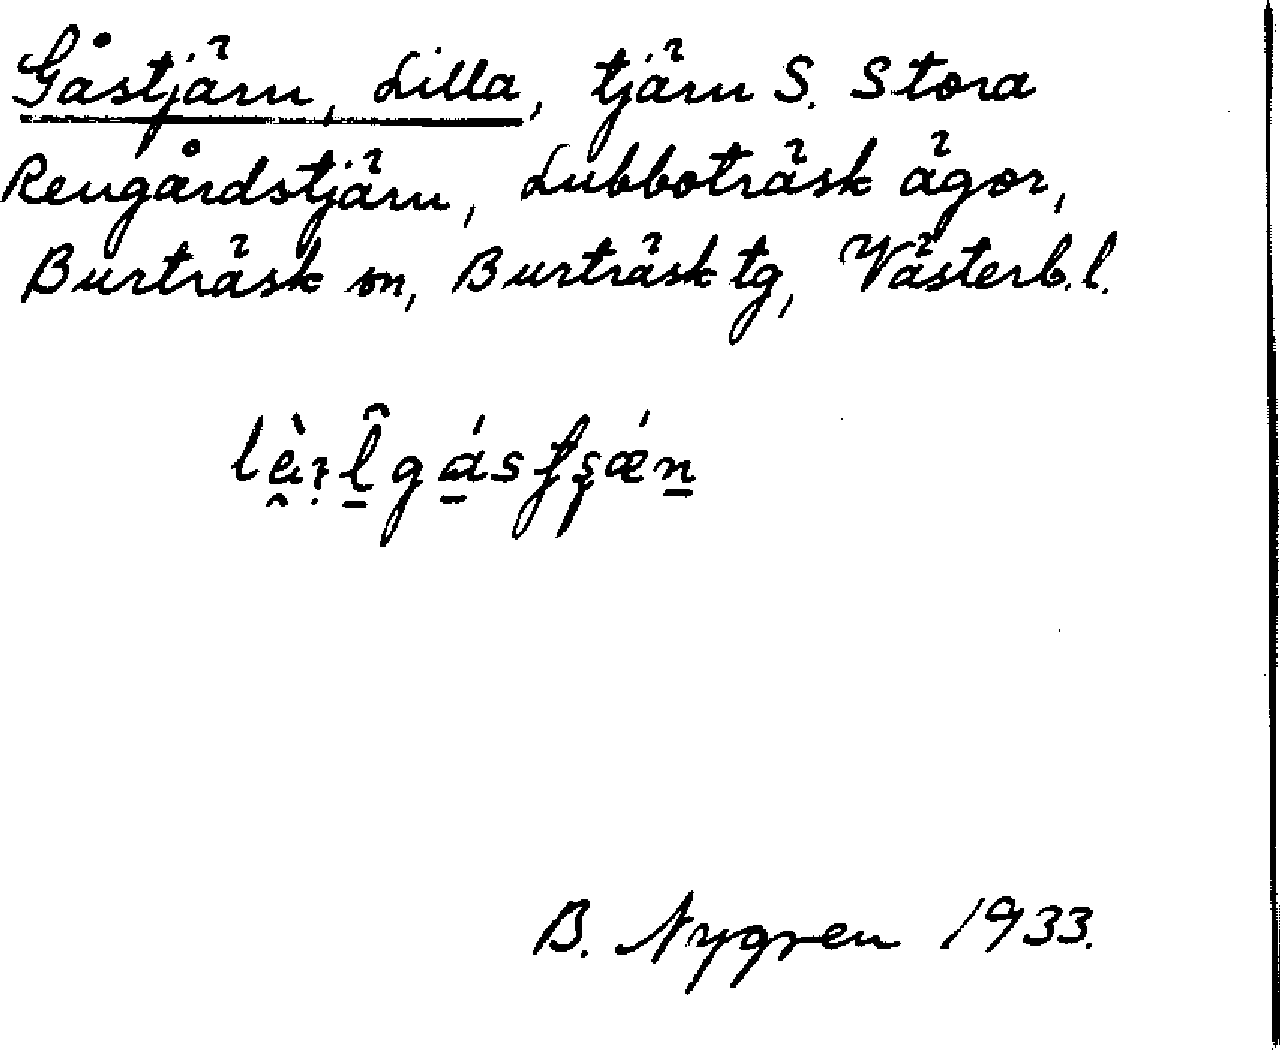 Gåstjärn, Lilla, tjärn S. Stora
Rengårdstjärn, Lubboträsk ägor,
Burträsk sn, Burträsk tg, Västerb. l.
B. Nygren 1933.